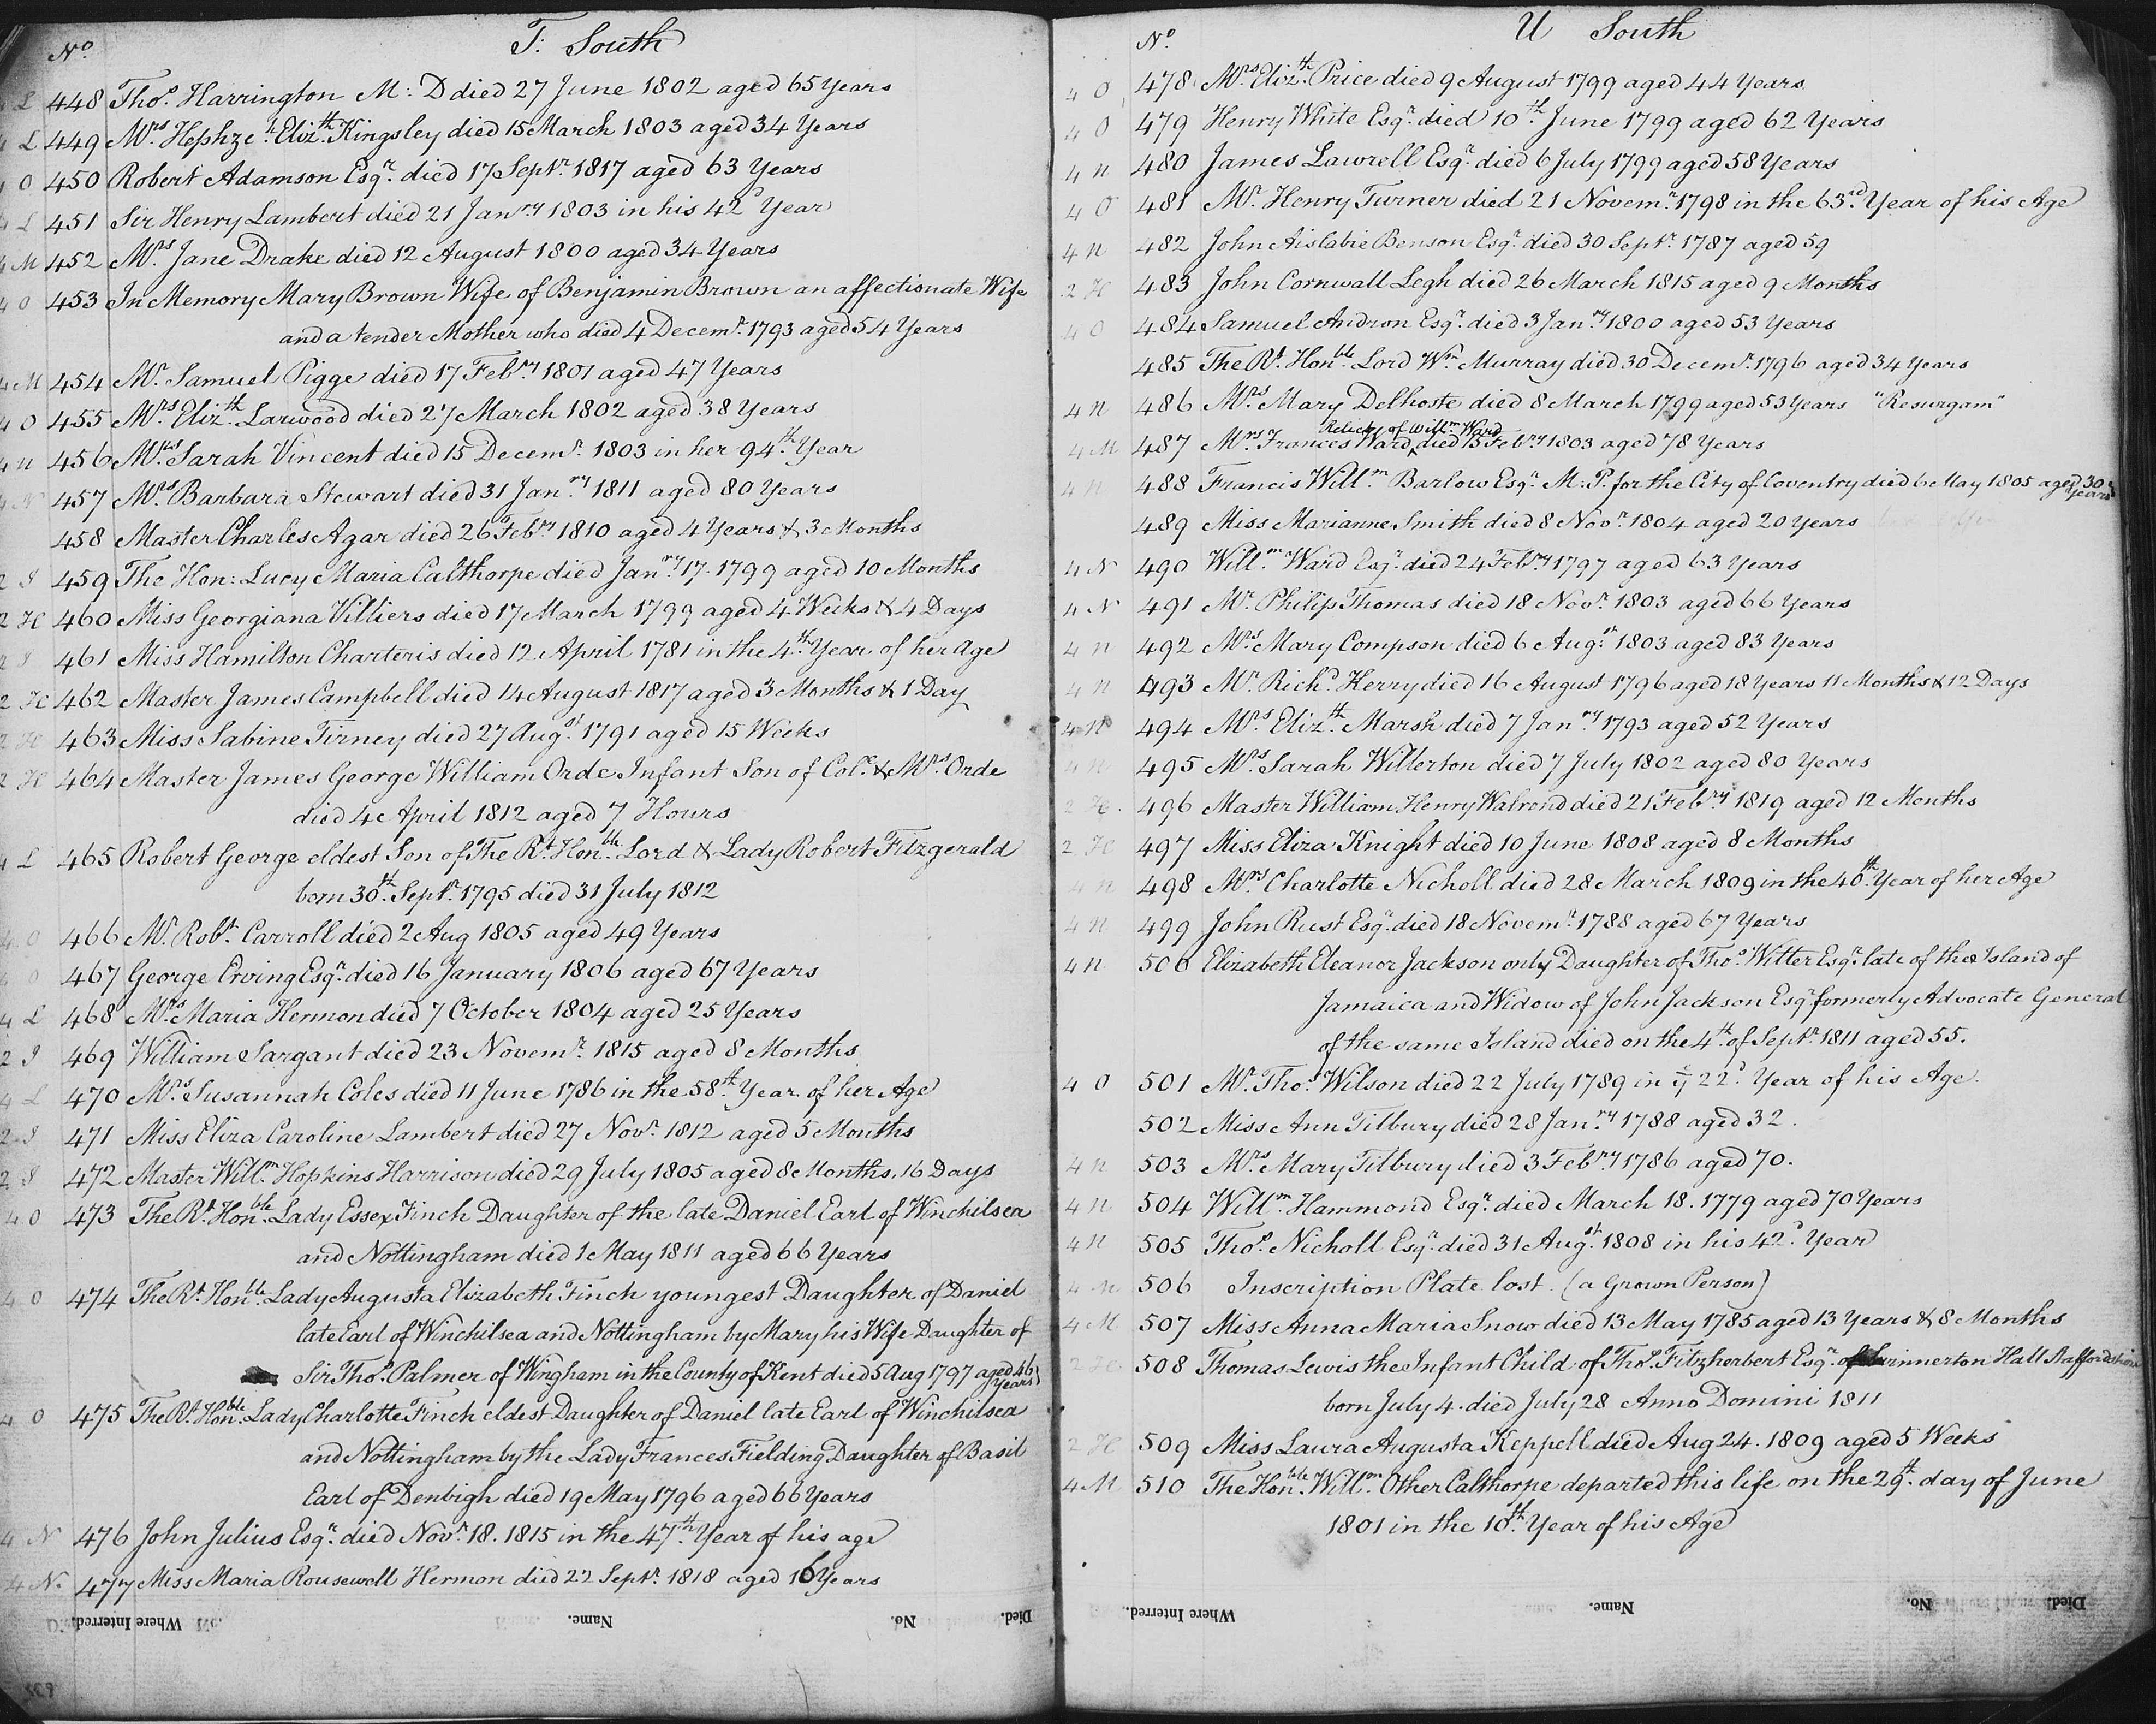 No. T: South
4 L 448 Thos. Harrington M: D died 27 June 1802 aged 65 Years
4 L 449 Mrs Hephzeh. Elizth. Kingsley died 15 March 1803 aged 34 Years
4 O 450 Robert Adamson Esqr. died 17 Septr. 1817 aged 63 Years
4 L 451 Sir Henry Lambert died 21 Janry 1803 in his 42d Year
4 M 452 Mrs. Jane Drake died 12 August 1800 aged 34 Years
4 O 453 In Memory Mary Brown Wife of Benjamin Brown an affectionate Wife
and a tender Mother who died 4 Decemr. 1793 aged 54 Years
4 M 454 Mr. Samuel Pigge died 17 Febry 1801 aged 47 Years
4 O 455 Mrs. Elizth. Larwood died 27 March 1802 aged 38 Years
4 n 456 Mrs. Sarah Vincent died 15 Decemr. 1803 in her 94th. Year
4 N 457 Mrs. Barbara Stewart died 31 Janry 1811 aged 80 Years
458 Master Charles Agar died 26 Febry 1810 aged 4 Years & 3 Months
2 I 459 The Hon: Lucy Maria Calthorpe died Janry 17. 1799 aged 10 Months
2 H 460 Miss Georgiana Villiers died 17 March 1799 aged 4 Weeks & 4 Days
2 I 461 Miss Hamilton Charteris died 12 April 1781 in the 4th Year of her Age
2 H 462 Master James Campbell died 14 August 1817 aged 3 Months & 1 Day
2 H 463 Miss Sabine Tirney died 27 Augst. 1791 aged 15 Weeks
2 H 464 Master James George William Orde Infant Son of Col. & Mrs. Orde
died 4 April 1812 aged 7 Hours
4 L 465 Robert George eldest Son of The Rt. Honble. Lord & Lady Robert Fitzgerald
born 30th. Septr. 1795 died 31 July 1812
4 O 466 Mr. Robt. Carroll died 2 Aug 1805 aged 49 Years
O 467 George Erving Esqr. died 16 January 1806 aged 67 Years
4 L 468 Mrs. Maria Hermon died 7 October 1804 aged 25 Years
2 I 469 William Sargant died 23 Novemr. 1815 aged 8 Months
4 L 470 Mrs. Susannah Coles died 11 June 1786 in the 58th. Year of her Age
2 I 471 Miss Eliza Caroline Lambert died 27 Novr. 1812 aged 5 Months
2 I 472 Master Willm. Hopkins Harrison died 29 July 1805 aged 8 Months, 16 Days
4 O 473 The Rt. Honble. Lady Essex Finch Daughter of the late Daniel Earl of Winchilsea
and Nottingham died 1 May 1811 aged 66 Years
4 O 474 The Rt. Honble. Lady Augusta Elizabeth Finch youngest Daughter of Daniel
late Earl of Winchilsea and Nottingham by Mary his Wife Daughter of
Sir Thos. Palmer of Wingham in the County of Kent died 5 Aug 1797 aged 46 Years
4 O 475 The Rt. Honble. Lady Charlotte Finch eldest Daughter of Daniel late Earl of Winchilsea
and Nottingham by the Lady Frances Fielding Daughter of Basil
Earl of Denbigh died 19 May 1796 aged 66 Years
4 N 476 John Julius Esqr. died Novr. 18. 1815 in the 47th. Year of his age
4 N. 477 Miss Maria Rousewell Hermon died 22 Septr. 1818 aged 16 Years
Where Interred. Name. No. Died.
No. U South
4 O 478 Mrs. Elizth. Price died 9 August 1799 aged 44 Years
4 O 479 Henry White Esqr. died 10th. June 1799 aged 62 Years
4 n 480 James Lawrell Esqr. died 6 July 1799 aged 58 Years
4 O 481 Mr. Henry Turner died 21 Novemr. 1798 in the 63rd. Year of his Age
4 n 482 John Aislabie Benson Esqr. died 30 Septr. 1787 aged 59
2 H 483 John Cornwall Legh died 26 March 1815 aged 9 Months
4 O 484 Samuel Andron Esqr. died 3 Janry 1800 aged 53 Years
485 The Rt. Honble. Lord Wm. Murray died 30 Decemr. 1796 aged 34 Years
4 n 486 Mrs. Mary Delhoste died 8 March 1799 aged 53 Years "Resurgam"
Relict of Willm. Ward
4 M 487 Mrs Frances Ward, died 15 Febry 1803 aged 78 Years
4 n 488 Francis Willm. Barlow Esqr. M: P. for the City of Coventry died 6 May 1805 aged 30 Years
489 Miss Marianne Smith died 8 Novr. 1804 aged 20 Years
4 N 490 Willm. Ward Esqr. died 24 Febry 1797 aged 63 Years
4 N 491 Mr. Philip Thomas died 18 Novr. 1803 aged 66 Years
4 n 492 Mrs. Mary Compson died 6 Augst. 1803 aged 83 Years
4 n 493 Mr. Richd. Kerry died 16 August 1796 aged 18 Years 11 Months & 12 Days
4 n 494 Mrs. Elizth. Marsh died 7 Janry 1793 aged 52 Years
4 n 495 Mrs. Sarah Willerton died 7 July 1802 aged 80 Years
2 H. 496 Master William Henry Walrond died 21 Febry 1819 aged 12 Months
2 H 497 Miss Eliza Knight died 10 June 1808 aged 8 Months
4 n 498 Mrs. Charlotte Nicholl died 28 March 1809 in the 40th. Year of her Age
4 n 499 John Rust Esqr. died 18 Novemr. 1788 aged 67 Years
4 n 500 Elizabeth Eleanor Jackson only Daughter of Thos. Witter Esqr. late of the Island of
Jamaica and Widow of John Jackson Esqr. formerly Advocate General
of the same Island died on the 4th. of Septr. 1811 aged 55.
4 O 501 Mr. Thos. Wilson died 22 July 1789 in ye 22d. Year of his Age.
502 Miss Ann Tilbury died 28 Janry 1788 aged 32.
4 n 503 Mrs. Mary Tilbury died 3 Febry 1786 aged 70.
4 n 504 Willm. Hammond Esqr. died March 18. 1779 aged 70 Years
4 n 505 Thos. Nicholl Esqr. died 31 Augst. 1808 in his 42d. Year
4 M 506 Inscription Plate lost. (a Grown Person)
4 M 507 Miss Anna Maria Snow died 13 May 1785 aged 13 Years & 8 Months
2 H 508 Thomas Lewis the Infant Child of Thos. Fitzherbert Esqr. of Swinnerton Hall Staffordshire
born July 4. died July 28 Anno Domini 1811
2 H 509 Miss Laura Augusta Keppell died Aug 24. 1809 aged 5 Weeks
4 M 510 The Honble. Willm. Other Calthorpe departed this life on the 29th. day of June
1801 in the 10th. Year of his Age
Where Interred. Name. No. Died.